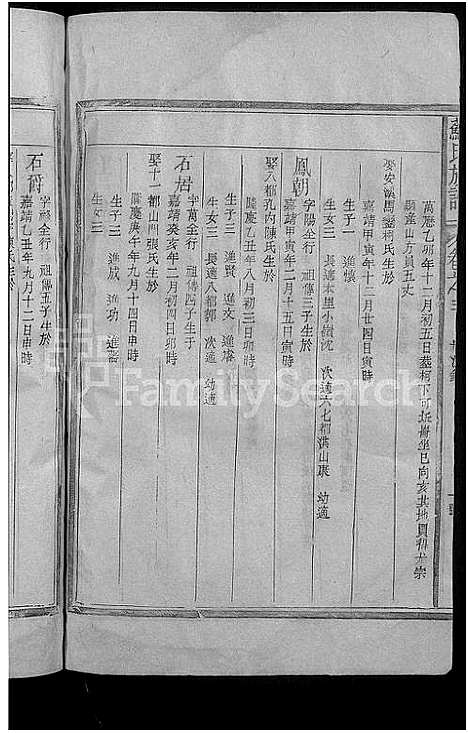 萬歷乙卯年十一月初五日葬柯下可坵崙坐巳向亥其地員和尤宗
顯產山方員五丈
娶安溪馬鑾柯氏生於
嘉靖甲寅年十二月廿四日寅時
生子一 進懷
生女二 長適本里小嶺沈 次適六七都溝山康 幼適
鳳朝 字陽全行 祖傳三子生於
嘉靖甲寅年二月十五日寅時
娶八都孔內陳氏生於
隆慶乙丑年八月初三日卯時
生子三 進賢 進文 進璿
生女三 長適八都郭 次適 幼適
石居 字萬全行 祖傳四子生于
嘉靖癸亥年二月初四日卯時
娶十一都山門張氏生於
隆慶庚午年九月十四日申時
生子三 進成 進功 進
生女三
石爵 字 全行 祖傳五子生於
嘉靖乙丑年九月十二日申時
FamilySearch